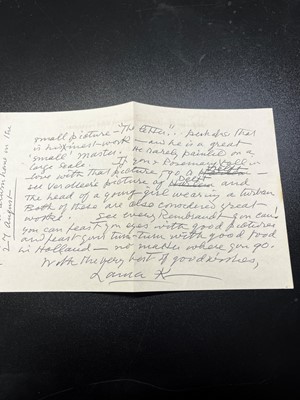 small picture – "The Letter". perhaps that
is his finest work – and he is a great
"small" Master. He rarely painted on a
large scale. If you & Rosemary fall in
love with that picture, go to Delft
see Vermeer's picture of Delft and
The head of a young girl wearing a turban
Both of these are also considered great
works. See every Rembrandt you can
you can feast you eyes with good pictures
and feast your tum-tum with good food
in Holland – no matter where you go.
With the very best of good wishes,
Laura K
in the
August